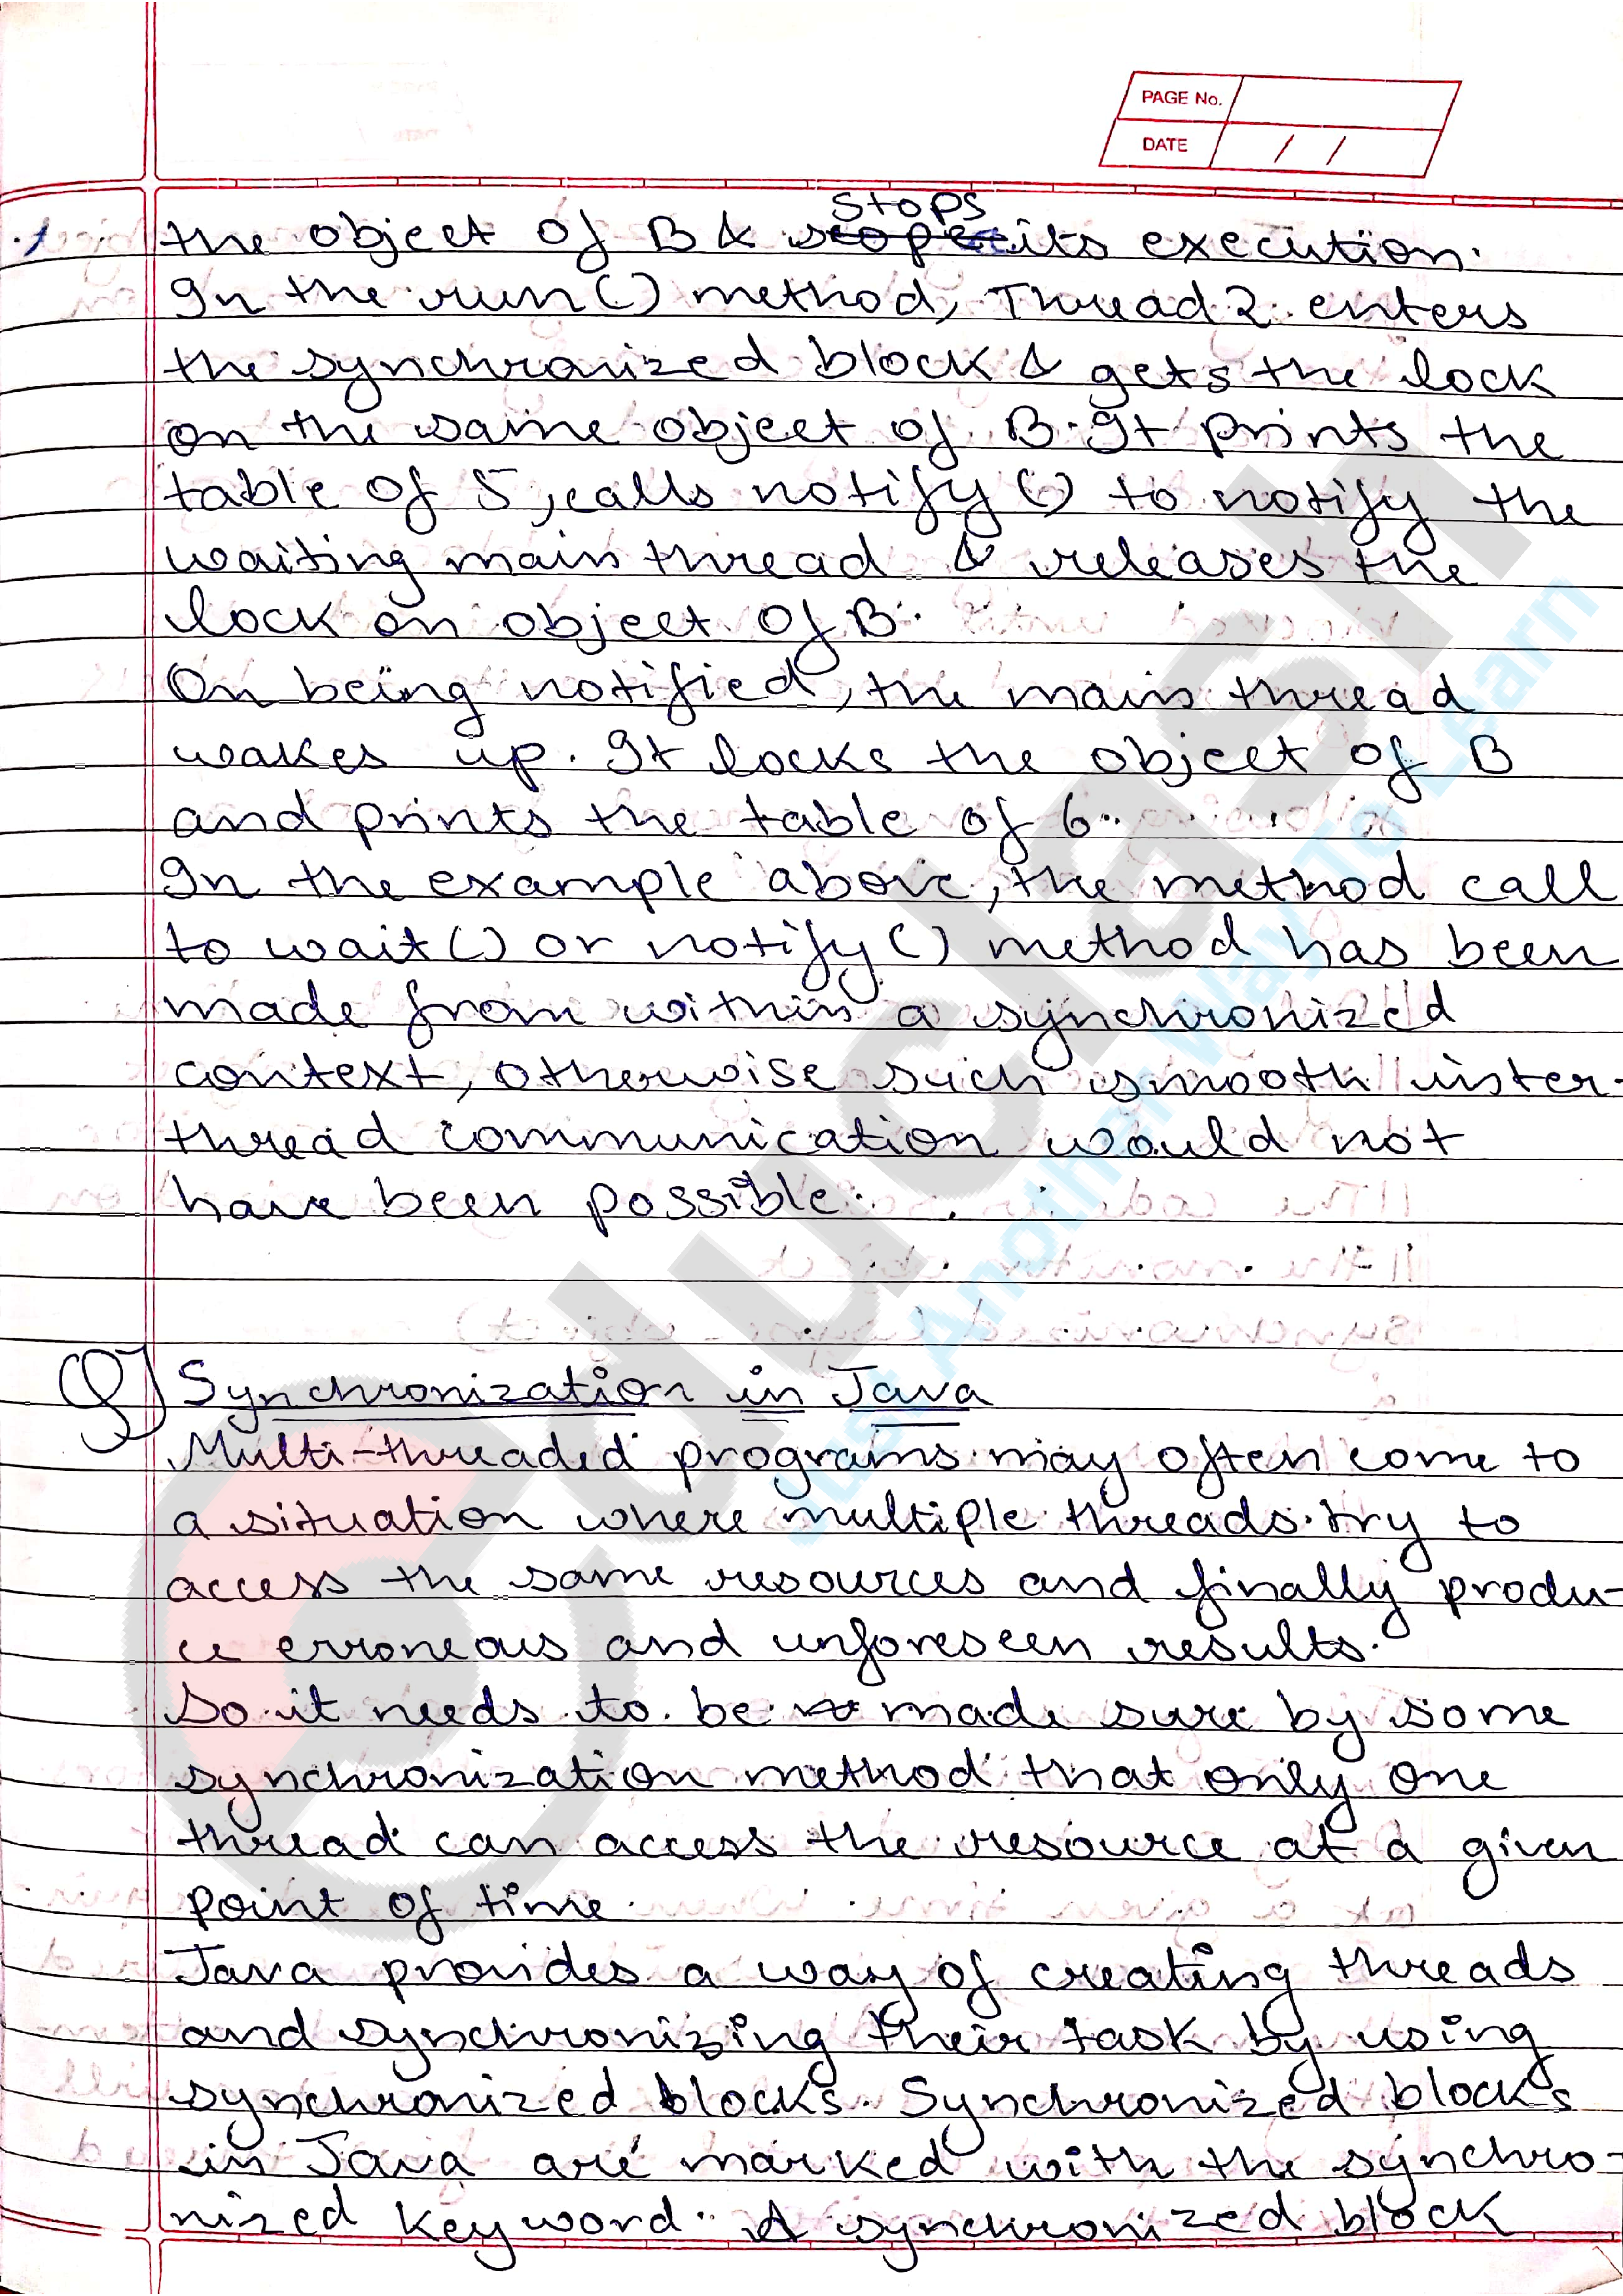 PAGE No.
DATE / /
the object of B & stops its execution.
In the run() method, Thread 2 enters
the synchronized block & gets the lock
on the same object of B. It prints the
table of 5, calls notify() to notify the
waiting main thread & releases the
lock on object of B.
On being notified, the main thread
wakes up. It locks the object of B
and prints the table of 6.
In the example above, the method call
to wait() or notify() method has been
made from within a synchronized
context, otherwise such smooth inter-
thread communication would not
have been possible.
Q) Synchronization in Java
Multi-threaded programs may often come to
a situation where multiple threads try to
access the same resources and finally produ-
ce erroneous and unforeseen results.
So it needs to be made sure by some
synchronization method that only one
thread can access the resource at a given
point of time.
Java provides a way of creating threads
and synchronizing their task by using
synchronized blocks. Synchronized blocks
in Java are marked with the synchro-
nized keyword. A synchronized block
educlash
Just Another Way To Learn